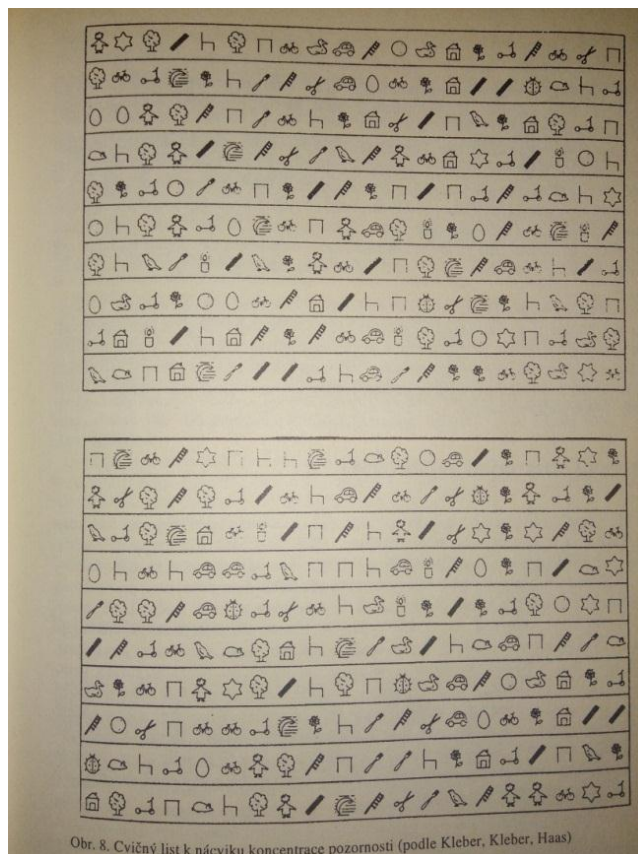 Obr. 8. Cvičný list k nácviku koncentrace pozornosti (podle Kleber, Kleber, Haas)